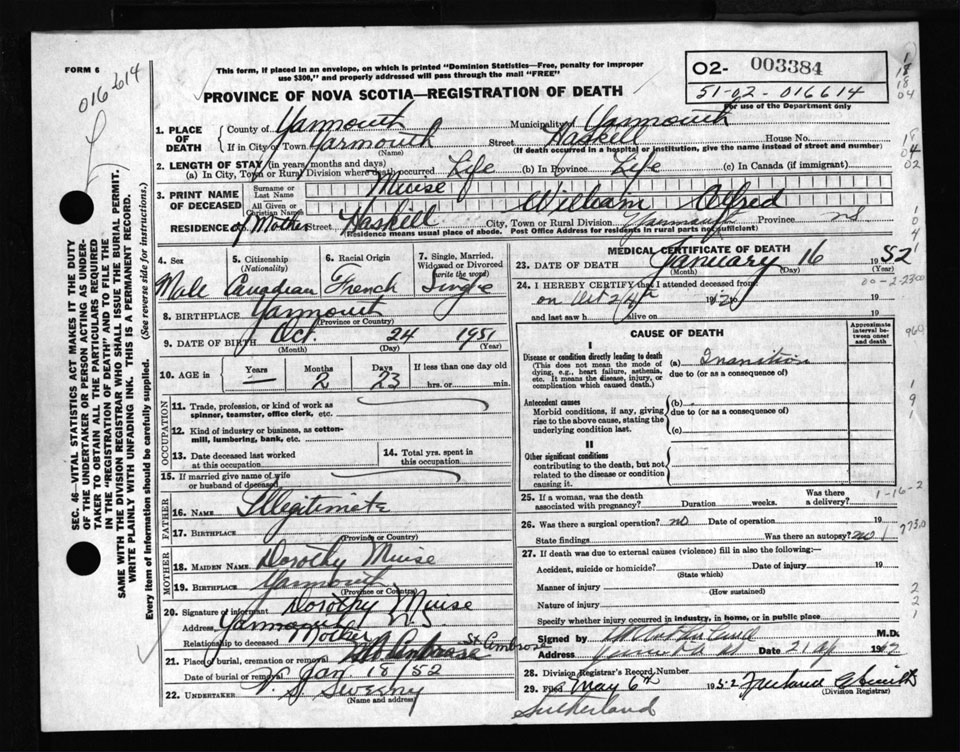 FORM 6
016614
This form, if placed in an envelope, on which is printed "Dominion Statistics—Free, penalty for improper
use $300," and properly addressed will pass through the mail "FREE"
PROVINCE OF NOVA SCOTIA—REGISTRATION OF DEATH
O2- 003384
51-02-016614
For use of the Department only
1. PLACE OF DEATH
County of Yarmouth Municipality of Yarmouth
If in City or Town Yarmouth Street Haskell House No.
(Name) (If death occurred in a hospital or institution, give the name instead of street and number)
2. LENGTH OF STAY (in years, months and days)
(a) In City, Town or Rural Division where death occurred Life (b) In Province Life (c) In Canada (if immigrant)
3. PRINT NAME OF DECEASED
Surname or Last Name Muise
All Given or Christian Names William Alfred
RESIDENCE of Mother Street, Haskell City, Town or Rural Division Yarmouth Province NS
(Residence means usual place of abode. Post Office Address for residents in rural parts not sufficient)
4. Sex Male
5. Citizenship (Nationality) Canadian
6. Racial Origin French
7. Single, Married, Widowed or Divorced (write the word) Single
8. BIRTHPLACE Yarmouth
(Province or Country)
9. DATE OF BIRTH Oct. 24 1951
(Month) (Day) (Year)
10. AGE in Years — Months 2 Days 23 If less than one day old
hrs. or min.
OCCUPATION
11. Trade, profession, or kind of work as
spinner, teamster, office clerk, etc.
12. Kind of industry or business, as cotton-
mill, lumbering, bank, etc.
13. Date deceased last worked
at this occupation
14. Total yrs. spent in
this occupation
15. If married give name of wife
or husband of deceased
FATHER
16. NAME Illegitimate
17. BIRTHPLACE
(Province or Country)
MOTHER
18. MAIDEN NAME Dorothy Muise
19. BIRTHPLACE Yarmouth
(Province or Country)
20. Signature of informant Dorothy Muise
Address Yarmouth N.S.
Relationship to deceased Mother
21. Place of burial, cremation or removal St. Ambrose
Date of burial or removal Jan. 18/52
22. UNDERTAKER V. S. Sweeny
(Name and address)
MEDICAL CERTIFICATE OF DEATH
23. DATE OF DEATH January 16 1952
(Month) (Day) (Year)
24. I HEREBY CERTIFY that I attended deceased from
on Oct 24th 19
and last saw h alive on 19
CAUSE OF DEATH
Approximate interval between onset and death
I
Disease or condition directly leading to death
(This does not mean the mode of
dying, e.g., heart failure, asthenia,
etc. It means the disease, injury, or
complication which caused death.)
(a) Inanition
due to (or as a consequence of)
Antecedent causes
Morbid conditions, if any, giving
rise to the above cause, stating the
underlying condition last.
(b)
due to (or as a consequence of)
(c)
II
Other significant conditions
contributing to the death, but not
related to the disease or condition
causing it.
25. If a woman, was the death
associated with pregnancy? Duration weeks. Was there a delivery?
26. Was there surgical operation? no Date of operation 19
State findings Was there an autopsy? no
27. If death was due to external causes (violence) fill in also the following:—
Accident, suicide or homicide? Date of injury 19
(State which)
Manner of injury
(How sustained)
Nature of injury
Specify whether injury occurred in industry, in home, or in public place
Signed by M.D.
Address Date 21 19
28. Division Registrar's Record Number
29. Filed May 6th 1952
(Division Registrar)
Sutherland
SEC. 46—VITAL STATISTICS ACT MAKES IT THE DUTY
OF THE UNDERTAKER OR PERSON ACTING AS UNDER-
TAKER TO OBTAIN ALL THE PARTICULARS REQUIRED
IN THE "REGISTRATION OF DEATH" AND TO FILE THE
SAME WITH THE DIVISION REGISTRAR WHO SHALL ISSUE THE BURIAL PERMIT.
WRITE PLAINLY WITH UNFADING INK. THIS IS A PERMANENT RECORD.
Every item of Information should be carefully supplied. (See reverse side for instructions.)